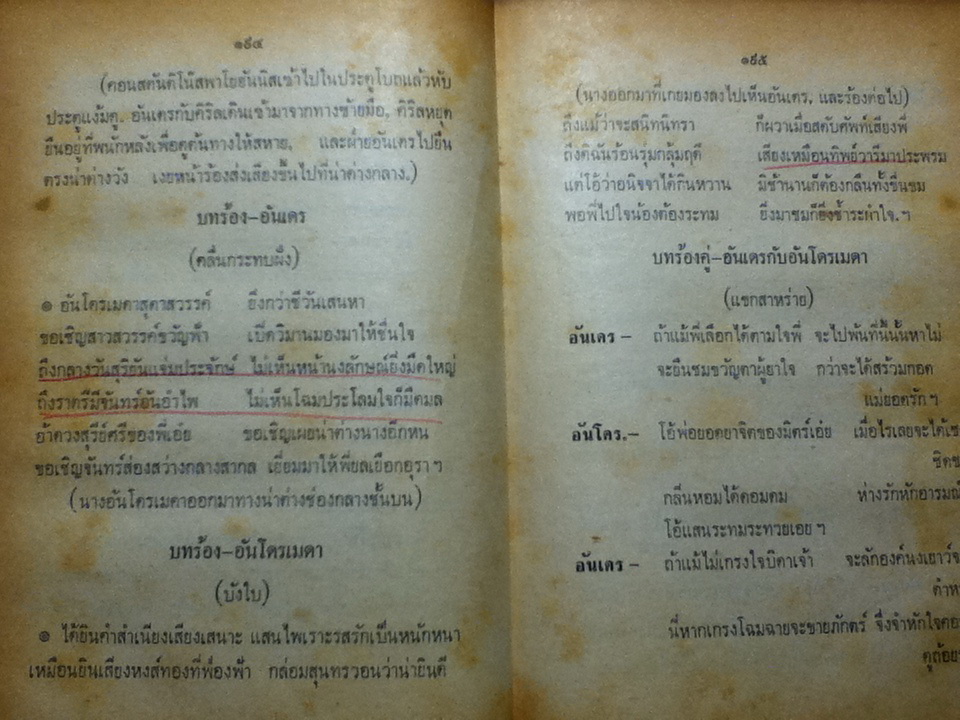 ๑๙๔
(คอนสตันติโน๊สพาโยฮันนิสเข้าไปในประตูโบถแล้วหับ
ประตูแง้มดู. อันเดรกับคิริลเดินเข้ามาจากทางซ้ายมือ, คิริลหยุด
ยืนอยู่ที่พนักหลังเพื่อดูต้นทางให้สหาย, และฝ่ายอันเดรไปยืน
ตรงน่าต่างวัง เงยหน้าร้องส่งเสียงขึ้นไปที่น่าต่างกลาง.)
บทร้อง-อันเดร
(คลื่นกระทบฝั่ง)
๏ อันโดรเมดาสุดาสวรรค์ ยิ่งกว่าชีวันเสนหา
ขอเชิญสาวสวรรค์ขวัญฟ้า เปิดวิมานมองมาให้ชื่นใจ
ถึงกลางวันสุริยันแจ่มประจักษ์ ไม่เห็นหน้านงลักษณ์ยิ่งมืดใหญ่
ถึงราตรีมีจันทร์อันอำไพ ไม่เห็นโฉมประโลมใจก็มืดมล
อ้าดวงสุรีย์ศรีของพี่เอ๋ย ขอเชิญเผยน่าต่างนางอีกหน
ขอเชิญจันทร์ส่องสว่างกลางสากล เยี่ยมมาให้พี่ยลเยือกอุราฯ
(นางอันโดรเมดาออกมาทางน่าต่างช่องกลางชั้นบน)
บทร้อง-อันโดรเมดา
(บังใบ)
๏ ได้ยินคำสำเนียงเสียงเสนาะ แสนไพเราะรสรักเป็นหนักหนา
เหมือนยินเสียงหงส์ทองที่ฟ่องฟ้า กล่อมสุนทรวอนว่าน่ายินดี
๑๙๕
(นางออกมาที่เกยมองลงไปเห็นอันเดร, และร้องต่อไป)
ถึงแม้ว่าจะสนิทนิทรา ก็ผวาเมื่อสดับศัพท์เสียงพี่
ถึงดิฉันร้อนรุ่มกลุ้มฤดี เสียงเหมือนทิพย์วารีมาประพรม
แต่โอ้ว่าอนิจจาได้กินหวาน มิช้านานก็ต้องกลืนทั้งขื่นขม
พอพี่ไปใจน้องต้องระทม ยิ่งมาชมก็ยิ่งช้ำระกำใจ.ฯ
บทร้องคู่-อันเดรกับอันโดรเมดา
(แขกสาหร่าย)
อันเดร - ถ้าแม้พี่เลือกได้ตามใจพี่ จะไปพ้นที่นี้นั้นหาไม่
จะยืนชมขวัญตาผู้ยาใจ กว่าจะได้สร้วมกอด
แม่ยอดรักฯ
อันโดร.- โอ้พ่อยอดยาจิตของมิตร์เอ่ย เมื่อไรเลยจะได้เช
ชิดช
กลิ่นหอมได้ดอมดม ห่างรักหักอารมณ์
โอ้แสนระทมระทวยเอยฯ
อันเดร - ถ้าแม้ไม่เกรงใจบิดาเจ้า จะลักองค์นงเยาว์จ
ดำห
นี่หากเกรงโฉมฉายจะขายภักตร์ จึ่งจำหักใจคอ
ดูถ้อย